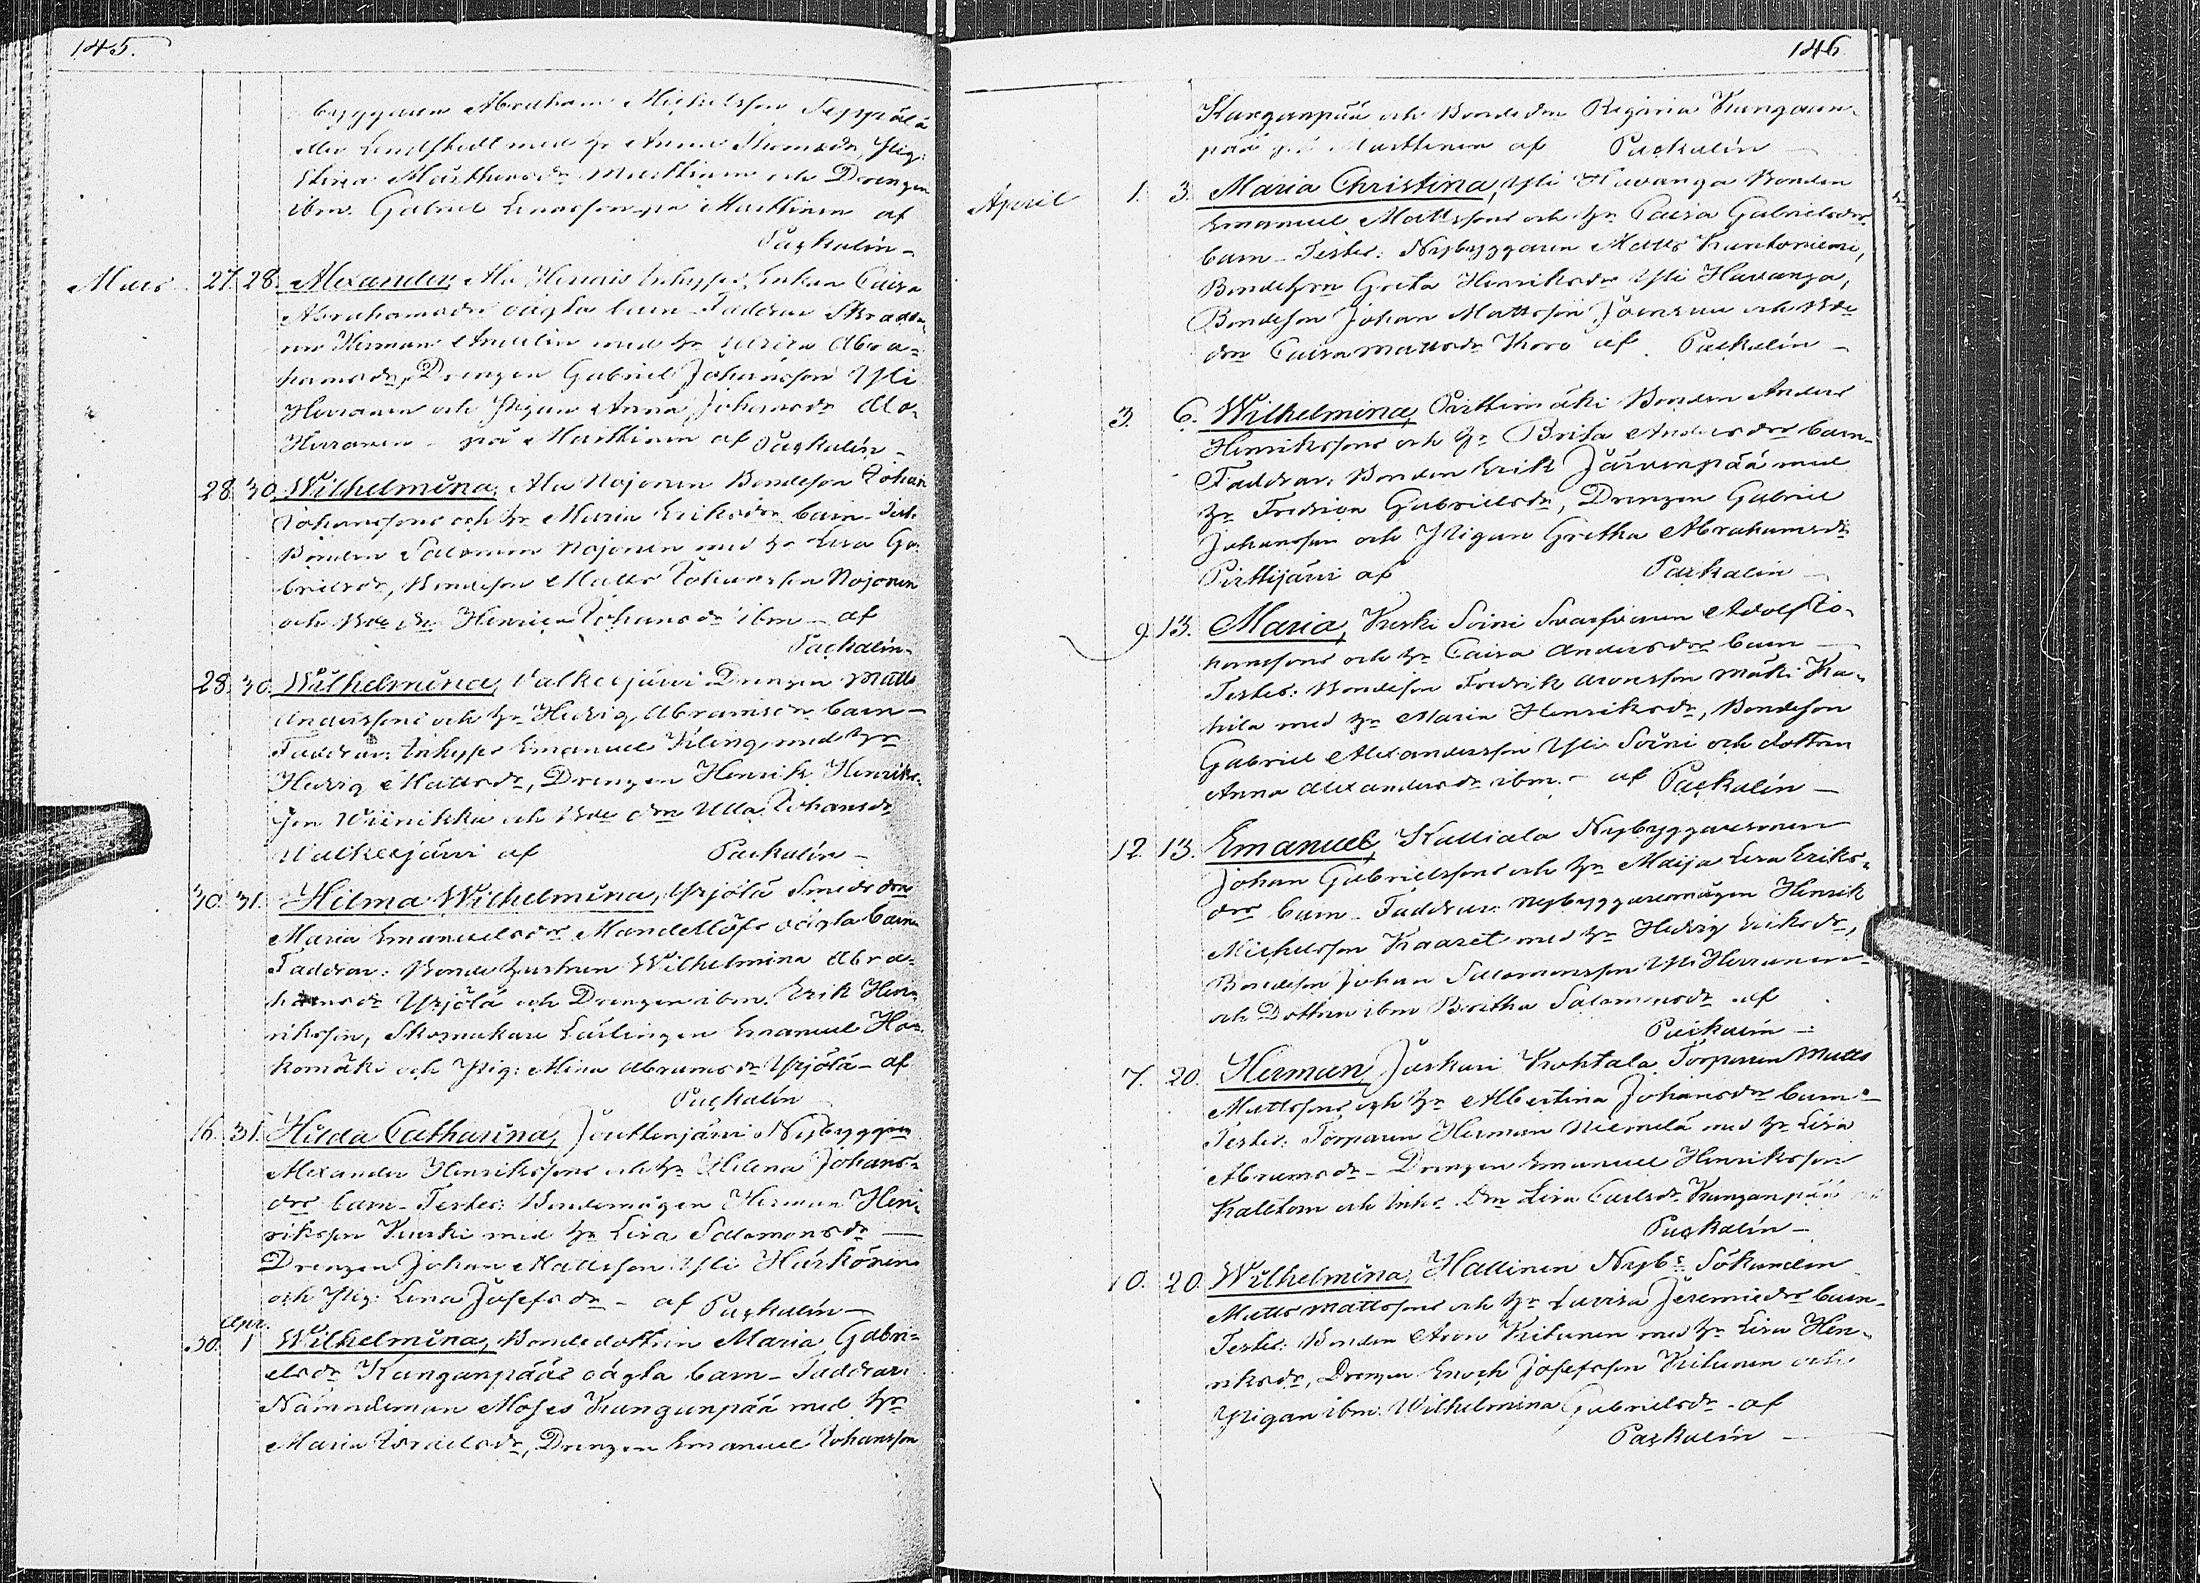 145.
byggaren Abraham Michelsson Seppälä
eller Lindstedt med h: Anna Thomasdr, Pig:
Stina Matthsdr Marttinen och Drengen
ibm. Gabriel på Marttinen af
Paskalin –
Mars 27. 28. Alexander, Ala Herrais Inhyses Enkan Caisa
Abrahamsdrs oägta barn – Faddrar Skradda-
ren Herman med h: Lovisa Abra-
hamsdr, Drengen Gabriel Johansson Yli
Herranen och Pigan Anna Johansdr Ala
Herranen – på Marttinen af Paskalin –
28. 30. Wilhelmina, Ala Nojonen Bondeson Johan
Johanssons och h: Maria Eriksdrs barn – Test:
Bonden Salomon Nojonen med h: Lisa Ga-
brielsdr, Bondeson Matts Johansson Nojonen
och Bde dr Henrica Johansdr ibm – af
Paskalin –
28. 30. Wilhelmina, Valkeejärvi Drengen Matts
Anderssons och h: Hedvig Abramsdrs barn –
Faddrar: Inhyses Emanuel Kling med h:
Hedvig Mattsdr, Drengen Henrik Henriks-
son Wiinikka och Bde dr Ulla Johansdr
Walkeejärvi af Paskalin –
30. 31. Hilma Wilhelmina, Yrjölä Smeds drs
Maria Emanuelsdrs Mandellöfs oägta barn
Faddrar: Bonde hustrun Wilhelmina Abra-
hamsdr Yrjölä och Drengen ibm. Erik Hen-
riksson, Skomakare Lärlingen Emanuel Ha-
komäki och Pig: Mina Abramsdr Yrjölä – af
Paskalin
16. 31. Hilda Catharina, Jouttenjärvi Nybyggn
Alexander Henrikssons och h: Helena Johans-
drs barn – Testes: Bondemågen Herman Hen-
riksson Kurki med h: Lisa Salomonsdr –
Drengen Johan Mattsson Yli Härkönen
och Pig: Lena Josefsdr – af Paskalin –
Apr.
30. 1 Wilhelmina, Bondedottren Maria Gabri-
elsdr Kanganpääs oägta barn – Faddrar:
Nämndeman Moses Kanganpää med h:
Maria Israelsdr, Drengen Emanuel Johansson
146
Kanganpää och Bondedrn Regina Kangan-
pää på Marttinen af Paskalin –
April 1. 3. Maria Christina, Yli Havanga Bonden
Emanuel Mattssons och h: Caisa Gabrielsdrs
barn – Testes: Nybyggaren Matts Kuntoniemi,
Bondehrn Greta Henriksdr Yli Havanga,
Bondeson Johan Mattsson och Bde
drn Caisa Mattsdr Koro af Paskalin –
3. 6. Wilhelmina, Pirttimäki Bonden Anders
Henrikssons och h: Brita Andersdrs barn –
Faddrar: Bonden Erik Järvenpää med
h: Fredrica Gabrielsdr, Drengen Gabriel
Johansson och Pigan Gretha Abrahamsdr
Pirttijärvi af Paskalin –
9. 13. Maria, Kurki Soini Svarfvaren Adolf Jo-
hanssons och h: Caisa Andersdrs barn –
Testes: Bondeson Fredrik Aronsson Mäki Ka-
hila med h: Maria Henriksdr, Bondeson
Gabriel Alexandersson Yli Soini och dottren
Anna Alexandersdr ibm. – af Paskalin –
12. 13. Emanuel, Kattiala Nybyggaremån
Johan Gabrielssons och h: Maija Lisa Eriks-
drs barn – Faddrar: Nybyggaremågen Henrik
Michelsson Kaaret med h: Hedvig Eriksdr,
Bondeson Johan Salomonsson Yli Herranen
och Dottren ibm Britha Salomonsdr – af
Paskalin –
7. 20. Herman, Juskari Kohtala Torparen Matts
Mattssons och h: Albertina Johansdrs barn –
Testes: Torparen Herman Niemelä med h: Lisa
Abramsdr – Drengen Emanuel Henriksson
och Inhs drn Lisa Carlsdr Kanganpää af
Paskalin –
10. 20. Wilhelmina, Hallinen Nybs Sökanden
Matts Mattssons och h: Lovisa Jeremiedrs barn –
Testes: Bonden Aron Kitunen med h: Lisa Hen-
riksdr, Drengen Enoch Josefsson Kitunen och
Pigan ibm. Wilhelmina Gabrielsdr – af
Paskalin –